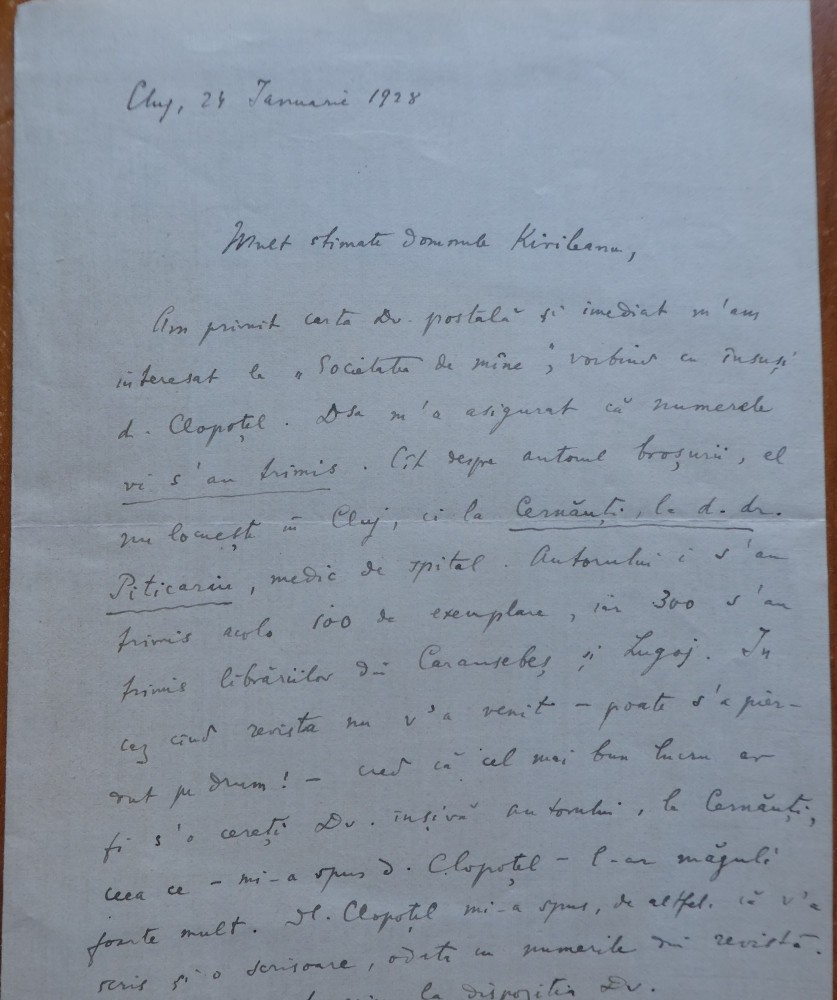 Cluj, 24 Ianuarie 1928
Mult stimate domnule Kirileanu,
Am primit carta Dv. poștală și imediat m'am
interesat la „Societatea de mîne”, vorbind cu însuși
d. Clopoțel. Dsa m'a asigurat că numerele
vi s'au trimis. Cît despre autorul broșurii, el
nu locuește în Cluj, ci la Cernăuți, la d. dr.
Piticariu, medic de spital. Autorului i s'au
trimis acolo 100 de exemplare, iar 300 s'au
trimis librăriilor din Caransebeș și Lugoj. In
caz cînd revista nu v'a venit – poate s'a pier-
dut pe drum! – cred că cel mai bun lucru ar
fi s'o cereți Dv. înșivă autorului, la Cernăuți,
ceea ce – mi-a spus d. Clopoțel – l-ar măguli
foarte mult. Dl. Clopoțel mi-a spus, de altfel, că v'a
scris și o scrisoare, odată cu numerile din revistă.
la dispoziția Dv.